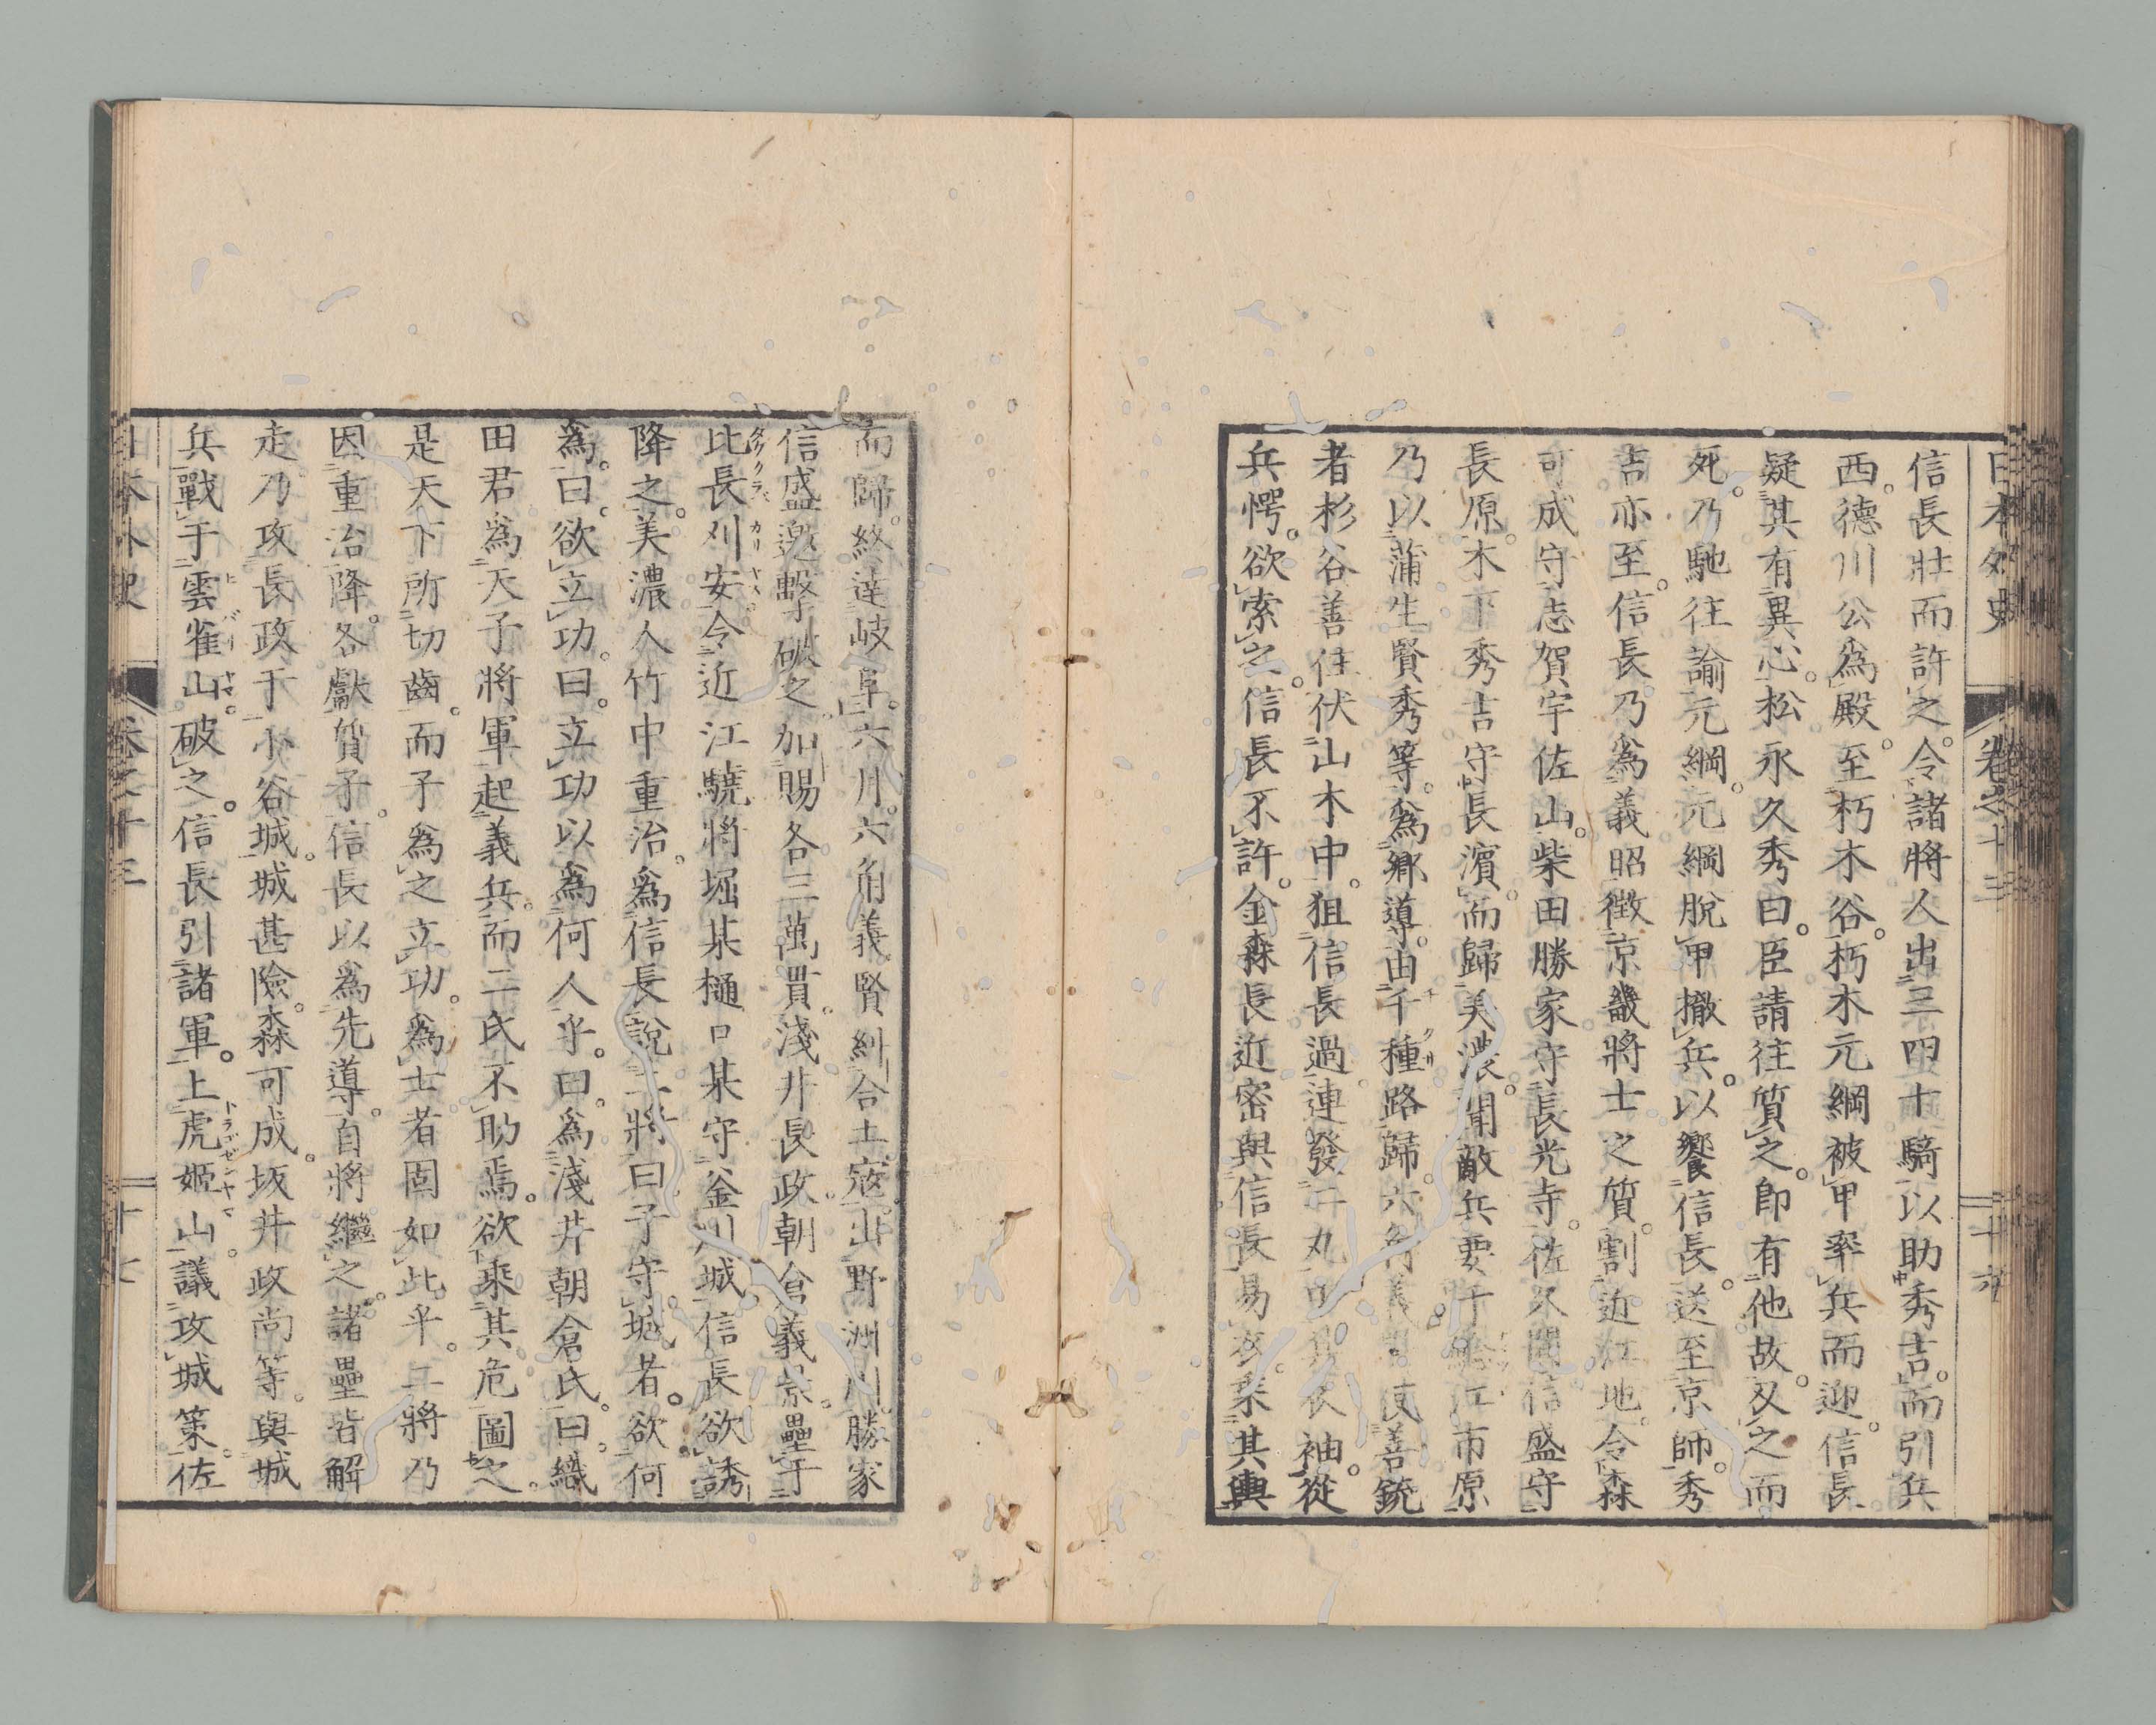 日本外史 卷之十三 十六
信長壯而許之。令諸將人出三四十騎以助秀吉。而引兵
西。德川公爲殿。至朽木谷。朽木元綱被甲率兵而迎。信長
疑其有異心。松永久秀曰。臣請往質之。卽有他故。刃之而
死。乃馳往諭元綱。元綱脫甲撤兵。以饗信長。送至京師。秀
吉亦至。信長乃爲義昭徵京畿將士之質。割近江地。令森
可成守志賀宇佐山。柴田勝家守長光寺。佐久閒信盛守
長原。木下秀吉守長濱。而歸美濃。聞敵兵要于鯰江市原
乃以蒲生賢秀等。爲鄉導。由千種路歸。六角義賢使善銃
者杉谷善住伏山木中。狙信長過連發二丸中其衣袖。從
兵愕。欲索之。信長不許。金森長近密與信長易衣乘其輿
而歸。終達岐阜。六月。六角義賢糾合土寇。出野洲川。勝家
信盛邀擊破之。加賜各三萬貫。淺井長政朝倉義景。壘于
比長刈安。令近江驍將堀某樋口某守釜川城。信長欲誘
降之。美濃人竹中重治。爲信長說二將曰子守城者。欲何
爲。曰。欲立功。曰。立功以爲何人乎。曰。爲淺井朝倉氏。曰。織
田君爲天子將軍起義兵。而二氏不助焉。欲乘其危圖之。
是天下所切齒。而子爲之立功。爲士者固如此乎。二將乃
因重治降。各獻質子。信長以爲先導。自將繼之。諸壘皆解
走。乃攻長政于小谷城。城甚險。森可成。坂井政尚等。與城
兵戰于雲雀山。破之。信長引諸軍。上虎姬山。議攻城策。佐
日本外史 卷之十三 十七